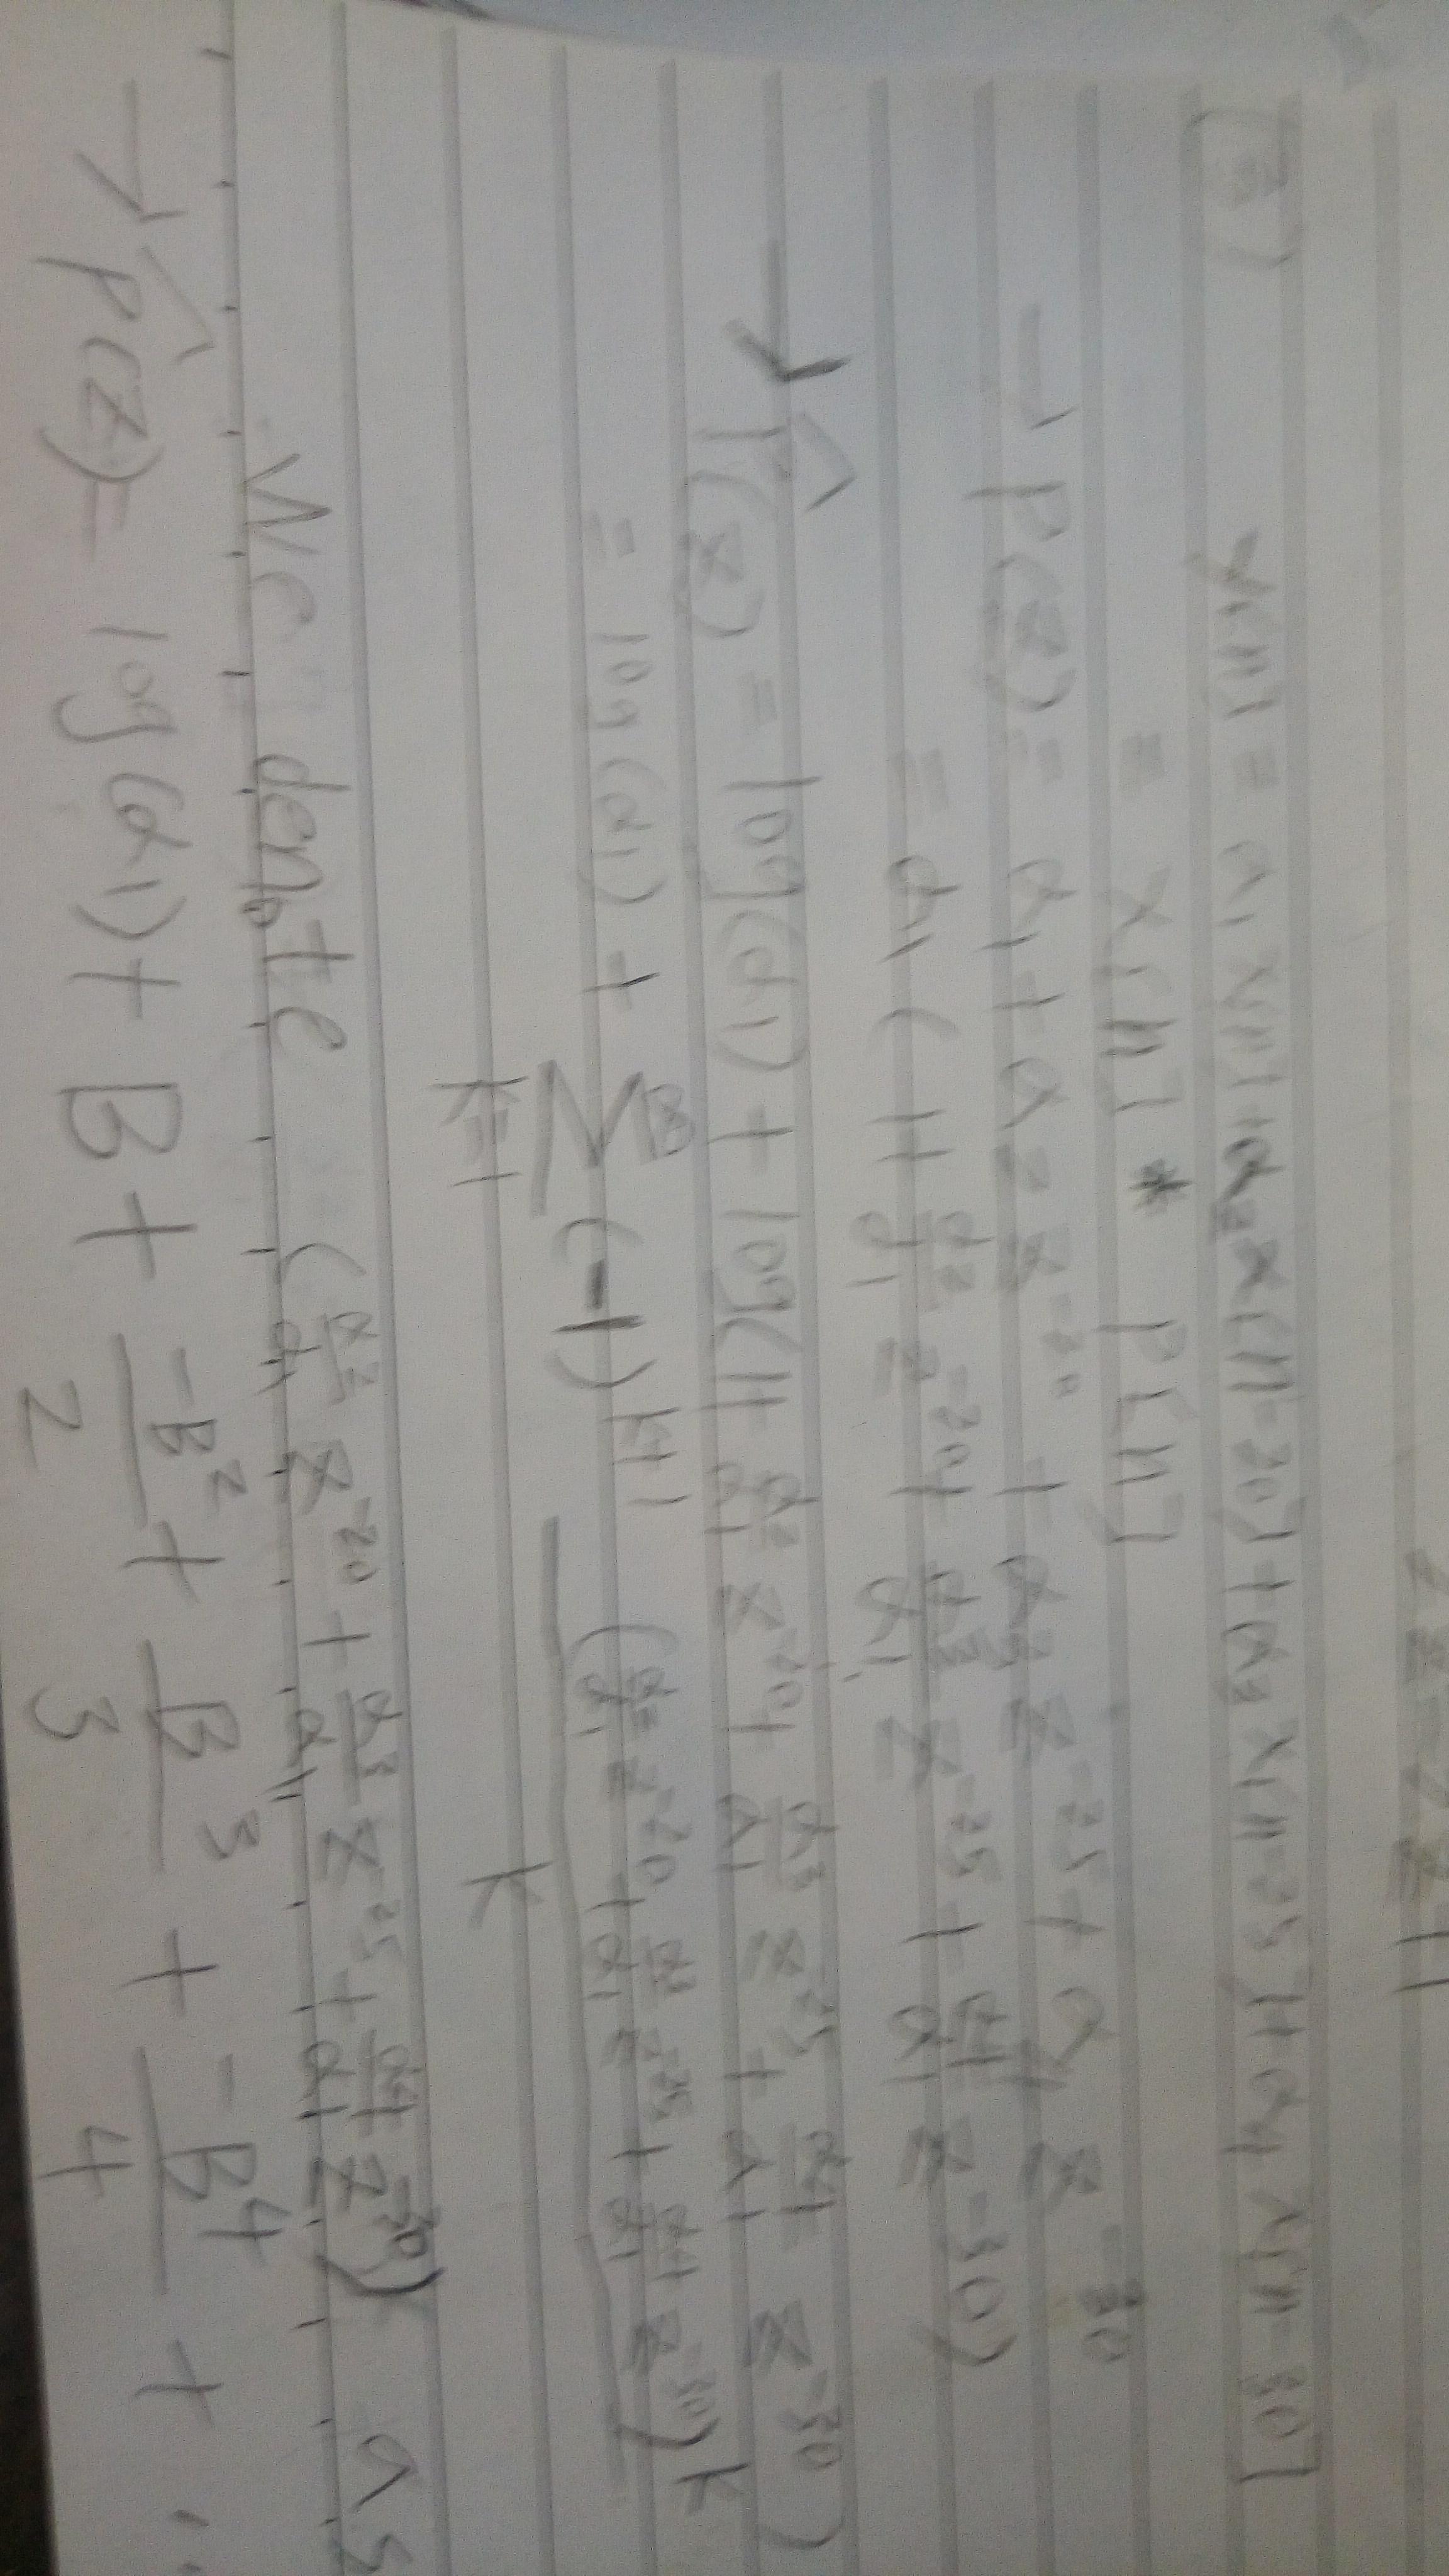 y[n] = α₁ x[n] + α₂ x[n-20] + α₃ x[n-25] + α₄ x[n-30]
= x[n] * p[n]
→ P(z) = α₁ + α₂ z⁻²⁰ + α₃ z⁻²⁵ + α₄ z⁻³⁰
= α₁ ( 1 + α₂/α₁ z⁻²⁰ + α₃/α₁ z⁻²⁵ + α₄/α₁ z⁻³⁰ )
→ P̂(z) = log(α₁) + log(1 + α₂/α₁ z⁻²⁰ + α₃/α₁ z⁻²⁵ + α₄/α₁ z⁻³⁰ )
= log(α₁) + ∑_{k=1}^{∞} (-1)^{k+1} (α₂/α₁ z⁻²⁰ + α₃/α₁ z⁻²⁵ + α₄/α₁ z⁻³⁰)^k / k
We denote (α₂/α₁ z⁻²⁰ + α₃/α₁ z⁻²⁵ + α₄/α₁ z⁻³⁰) as
→ P̂(z) = log(α₁) + B + -B²/2 + B³/3 + -B⁴/4 + ..